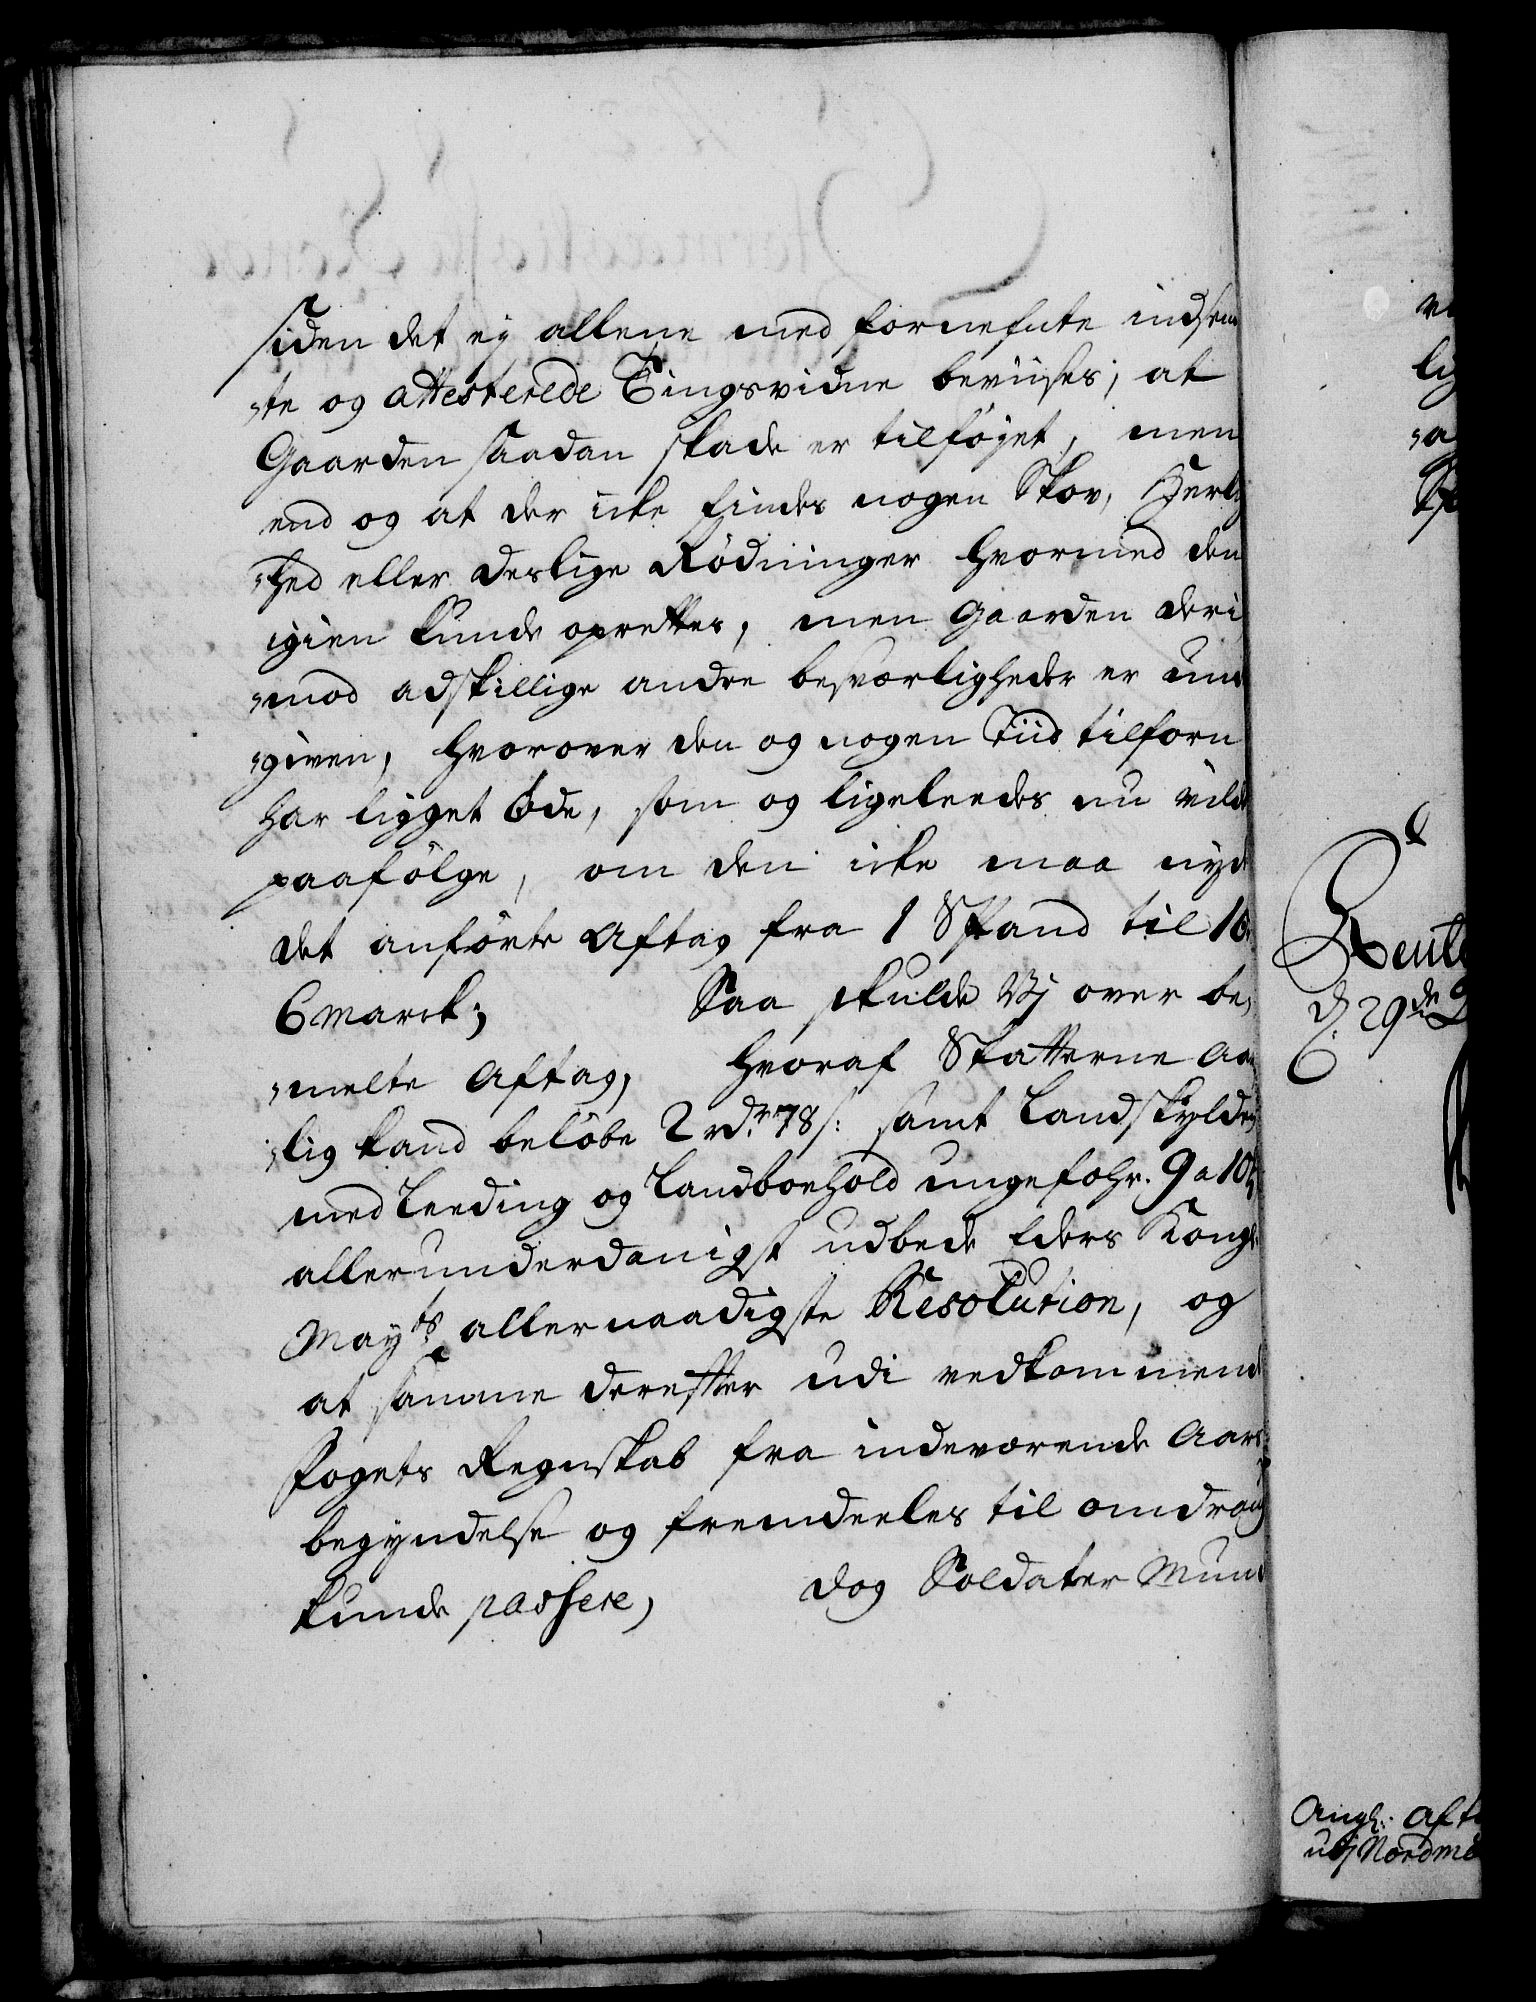 siden det ej allene med fornefnte indsen
„te og attesterede Tingsvidne beviises, at
Gaarden saadan skade er tilføjet, men
end og at der icke findes nogen Skov, Herlig
„hed eller deslige Rødninger hvormed den
igien kunde oprettes, men Gaarden deri
„mod adskillige andre besværligheder er und
„given, hvorover den og nogen Tiid tilforn
har ligget øde, som og ligeleedes nu vilde
paafølge, om den icke maa nyde
det anførte Aftag fra 1 Spand til 1 ø
6 marck; Saa skulde Vj over be„
„melte Aftag, hvoraf Skatterne Aar
„lig kand beløbe 2 rdr 78 s: samt Landskylden
med Leeding og Landboehold ungefehr. 9 a 10
allerunderdanigst udbede Eders Kongl:
Mayts allernaadigste Resolution, og
at samme derefter udi vedkommende
Fogets Regnskab fra indeværende Aars
begyndelse og fremdeeles til omdrag
kunde passere, dog Soldater Mund
Rente
d. 29de
Angl: aft
udj Nordmø